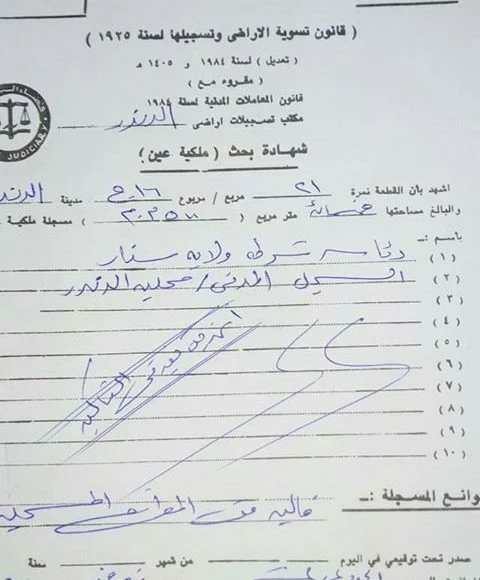 ( قانون تسوية الاراضى وتسجيلها لسنة ١٩٢٥ )
( تعديل ) لسنة ١٩٨٤ و ١٤٠٥ هـ
( مقروء مع )
قانون المعاملات المدنية لسنة ١٩٨٤
مكتب تسجيلات اراضى الدندر
JUDICIARY
شهادة بحث ( ملكية عين )
اشهد بأن القطعة نمرة ٢١ مربع / مربوع ١٦ ح مدينة الدندر
والبالغ مساحتها خمسمائة متر مربع ( ٥٠٠ م م ) مسجلة ملكية
بأسم :ـ
(١) رئاسة شرطة ولاية سنار
(٢) السجل المدني / محلية الدندر
(٣)
(٤)
(٥)
(٦)
(٧)
(٨)
(٩)
(١٠)
وانع المسجلة :ـ
خالية من الموانع المسجلة
صدر تحت توقيعي في اليوم من شهر سنة